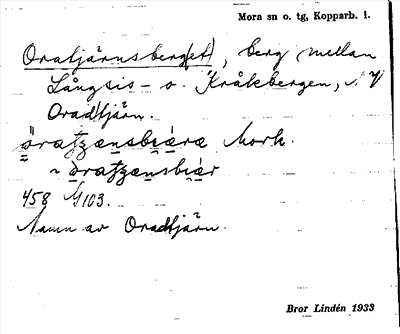 Mora sn o. tg, Kopparb. l.
Oratjärnsberg(et), berg mellan
Långsis- o. Kråkbergen, N V
Oradtjärn.
Mork.
458 G103.
Namn av Oradtjärn.
Bror Lindén 1933